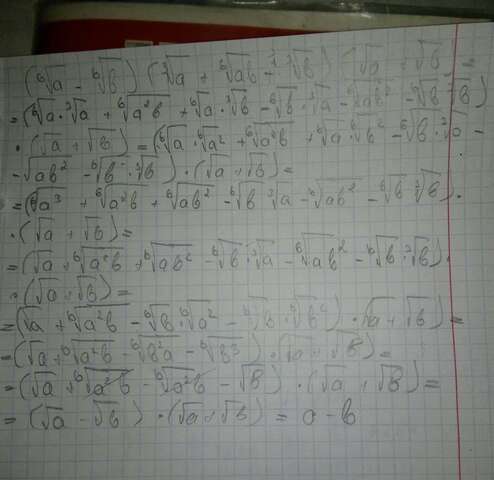 (⁶√a - ⁶√b)(³√a + ⁶√ab + ³√b)(√a + √b) =
= (⁶√a·³√a + ⁶√a²b + ⁶√a·³√b - ⁶√b·³√a - ⁶√ab² - ⁶√b·³√b)
·(√a + √b) = (⁶√a·⁶√a² + ⁶√a²b + ⁶√a·⁶√b² - ⁶√b·³√a -
- √ab² - ⁶√b·³√b)·(√a + √b) =
= (⁶√a³ + ⁶√a²b + ⁶√ab² - ⁶√b ³√a - ⁶√ab² - ⁶√b ³√b)·
·(√a + √b) =
= (√a + ⁶√a²b + ⁶√ab² - ⁶√b·³√a - ⁶√ab² - ⁶√b·³√b)·
·(√a + √b) =
= (√a + ⁶√a²b - ⁶√b·⁶√a² - ⁶√b·⁶√b²)·(√a + √b) =
= (√a + ⁶√a²b - ⁶√b²a - ⁶√b³)·(√a + √b) =
= (√a + ⁶√a²b - ⁶√a²b - √b)·(√a + √b) =
= (√a - √b)·(√a + √b) = a - b